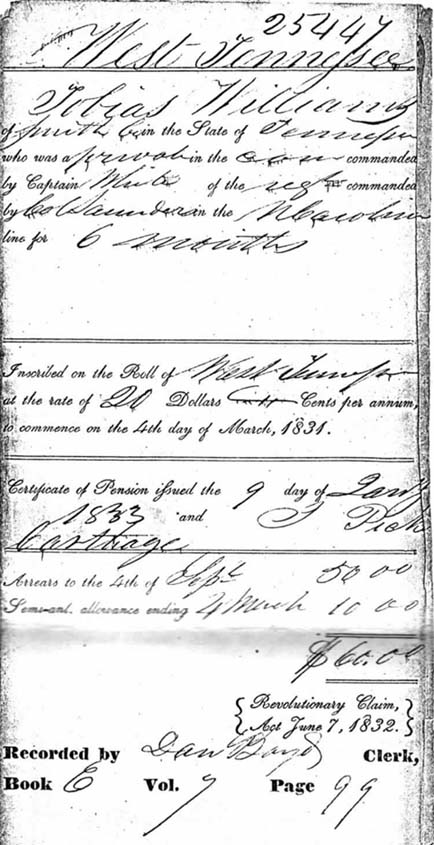 25447
West Tennessee
Tobias Williams
of Smith Co in the State of Tennessee
who was a private in the commanded
by Captain White of the regt commanded
by Col Saunders in the N Carolina
line for 6 months
Inscribed on the Roll of West Tennessee
at the rate of 20 Dollars Cents per annum,
to commence on the 4th day of March, 1831.
Certificate of Pension issued the 9 day of Jany
1833 and
Carthage
Arrears to the 4th of Sept 50 00
Semi-anl. allowance ending 4 March 10 00
$60.00
Revolutionary Claim,
Act June 7, 1832.
Recorded by Dan Boyd Clerk,
Book E Vol. 7 Page 99